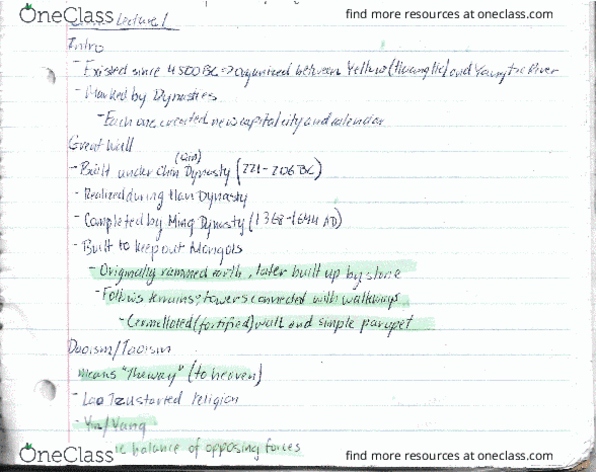 OneClass
find more resources at oneclass.com
Lecture 1
Intro
- Existed since 4500 BC → organized between Yellow (Huang He) and Yangtze River
- Marked by Dynasties
- Each one created new capital city and calendar
Great Wall
(Qin)
- Built under Chin Dynasty (221-206 BC)
- Realized during Han Dynasty
- Completed by Ming Dynasty (1368-1644 AD)
- Built to keep out Mongols
- Originally rammed earth, later built up by stone
- Follows terrains; towers connected with walkways
- Crenellated (fortified) wall and simple parapet
Daoism/Taoism
means "The way" (to heaven)
- Lao Tzu started religion
- Yin/Yang
balance of opposing forces
OneClass
find more resources at oneclass.com